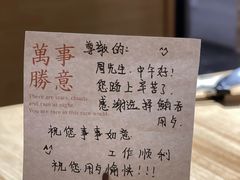 萬事
勝意
There are tears, clouds
and rain at night.
You are in this mad world.
尊敬的:
周先生,中午好!
您路上辛苦了.
感谢选择鲔香
用夕.
祝您事事如意
工作顺利
祝您用夕愉快!!!